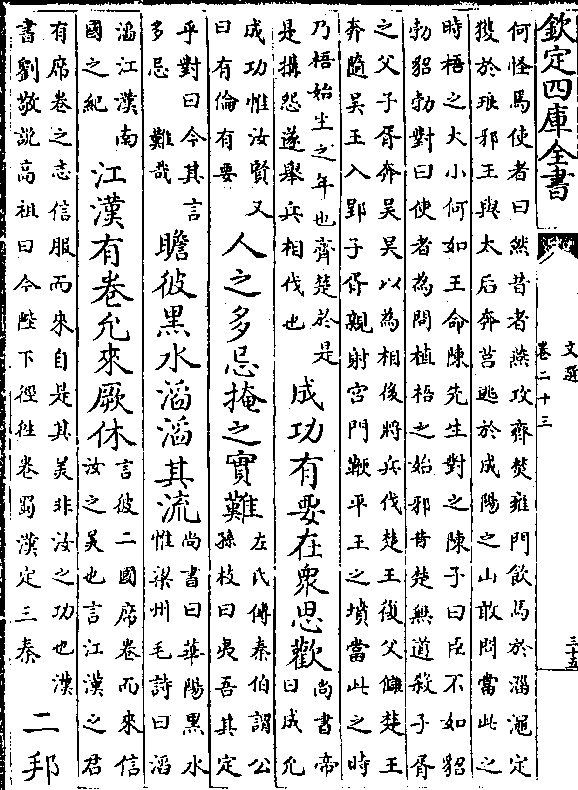 欽定四庫全書
文選
卷二十三
三十五
何怪焉使者曰然昔者燕攻齊焚雍門飲馬於淄澠定
獲於琅邪王與太后奔莒逃於成陽之山敢問當此之
時梧之大小何如王命陳先生對之陳子曰臣不如貂
勃貂勃對曰使者為問植梧之始邪昔楚無道殺子胥
之父子胥奔吳吳以為相後將兵伐楚王復父讎楚王
奔隨吳王入郢子胥親射宮門鞭平王之墳當此之時
乃梧始生之年也齊楚於是
是搆怨遂舉兵相伐也
成功有要在衆思歡
尚書帝
曰成允
成功惟汝賢又
曰有倫有要
人之多忌掩之實難
左氏傳秦伯謂公
孫枝曰夷吾其定
乎對曰今其言
多忌難哉
瞻彼黑水滔滔其流
尚書曰華陽黑水
惟梁州毛詩曰滔
滔江漢南
國之紀
江漢有卷允來厥休
言彼二國席卷而來信
汝之美也言江漢之君
有席卷之志信服而來自是其美非汝之功也漢
書劉敬說高祖曰今陛下徑往卷蜀漢定三秦
二邦